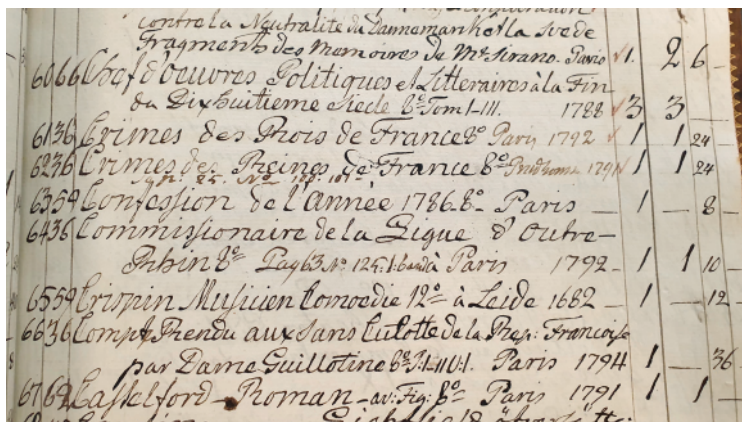 contre la Neutralité du Dannemark et la Svede
Fragments des Memoires de Mr Sirano. Paris 1. 2 6 _
60 66 Chef d'oeuvres Politiques et Litteraires à la Fin
du Dixhuitieme Siecle 8º Tom I-III. 1788 3 3 _
61 36 Crimes des Rois de France 8º Paris 1792 1 1 24
62 36 Crimes des Reines de France 8º Prudhome 1791 1 1 24
63 59 Confession de l'Année 1786 8º Paris _ 1 _ 8 _
64 36 Commissionaire de la Ligue d'Outre-
Rhin 8º Pag 63 Nº 125. à Paris 1792 _ 1 1 10 _
65 59 Crispin Musicien Comoedie 12º à Leide 1682 _ 1 _ 12 _
66 36 Compt Rendu aux Sans Culotte de la Rep: Francoise
par Dame Guillotine 8º P: I-II V: 1. Paris 1794 1 _ 36 _
67 62 Casselford _ Roman _ av: Fig: 8º Paris 1791 1 1 _